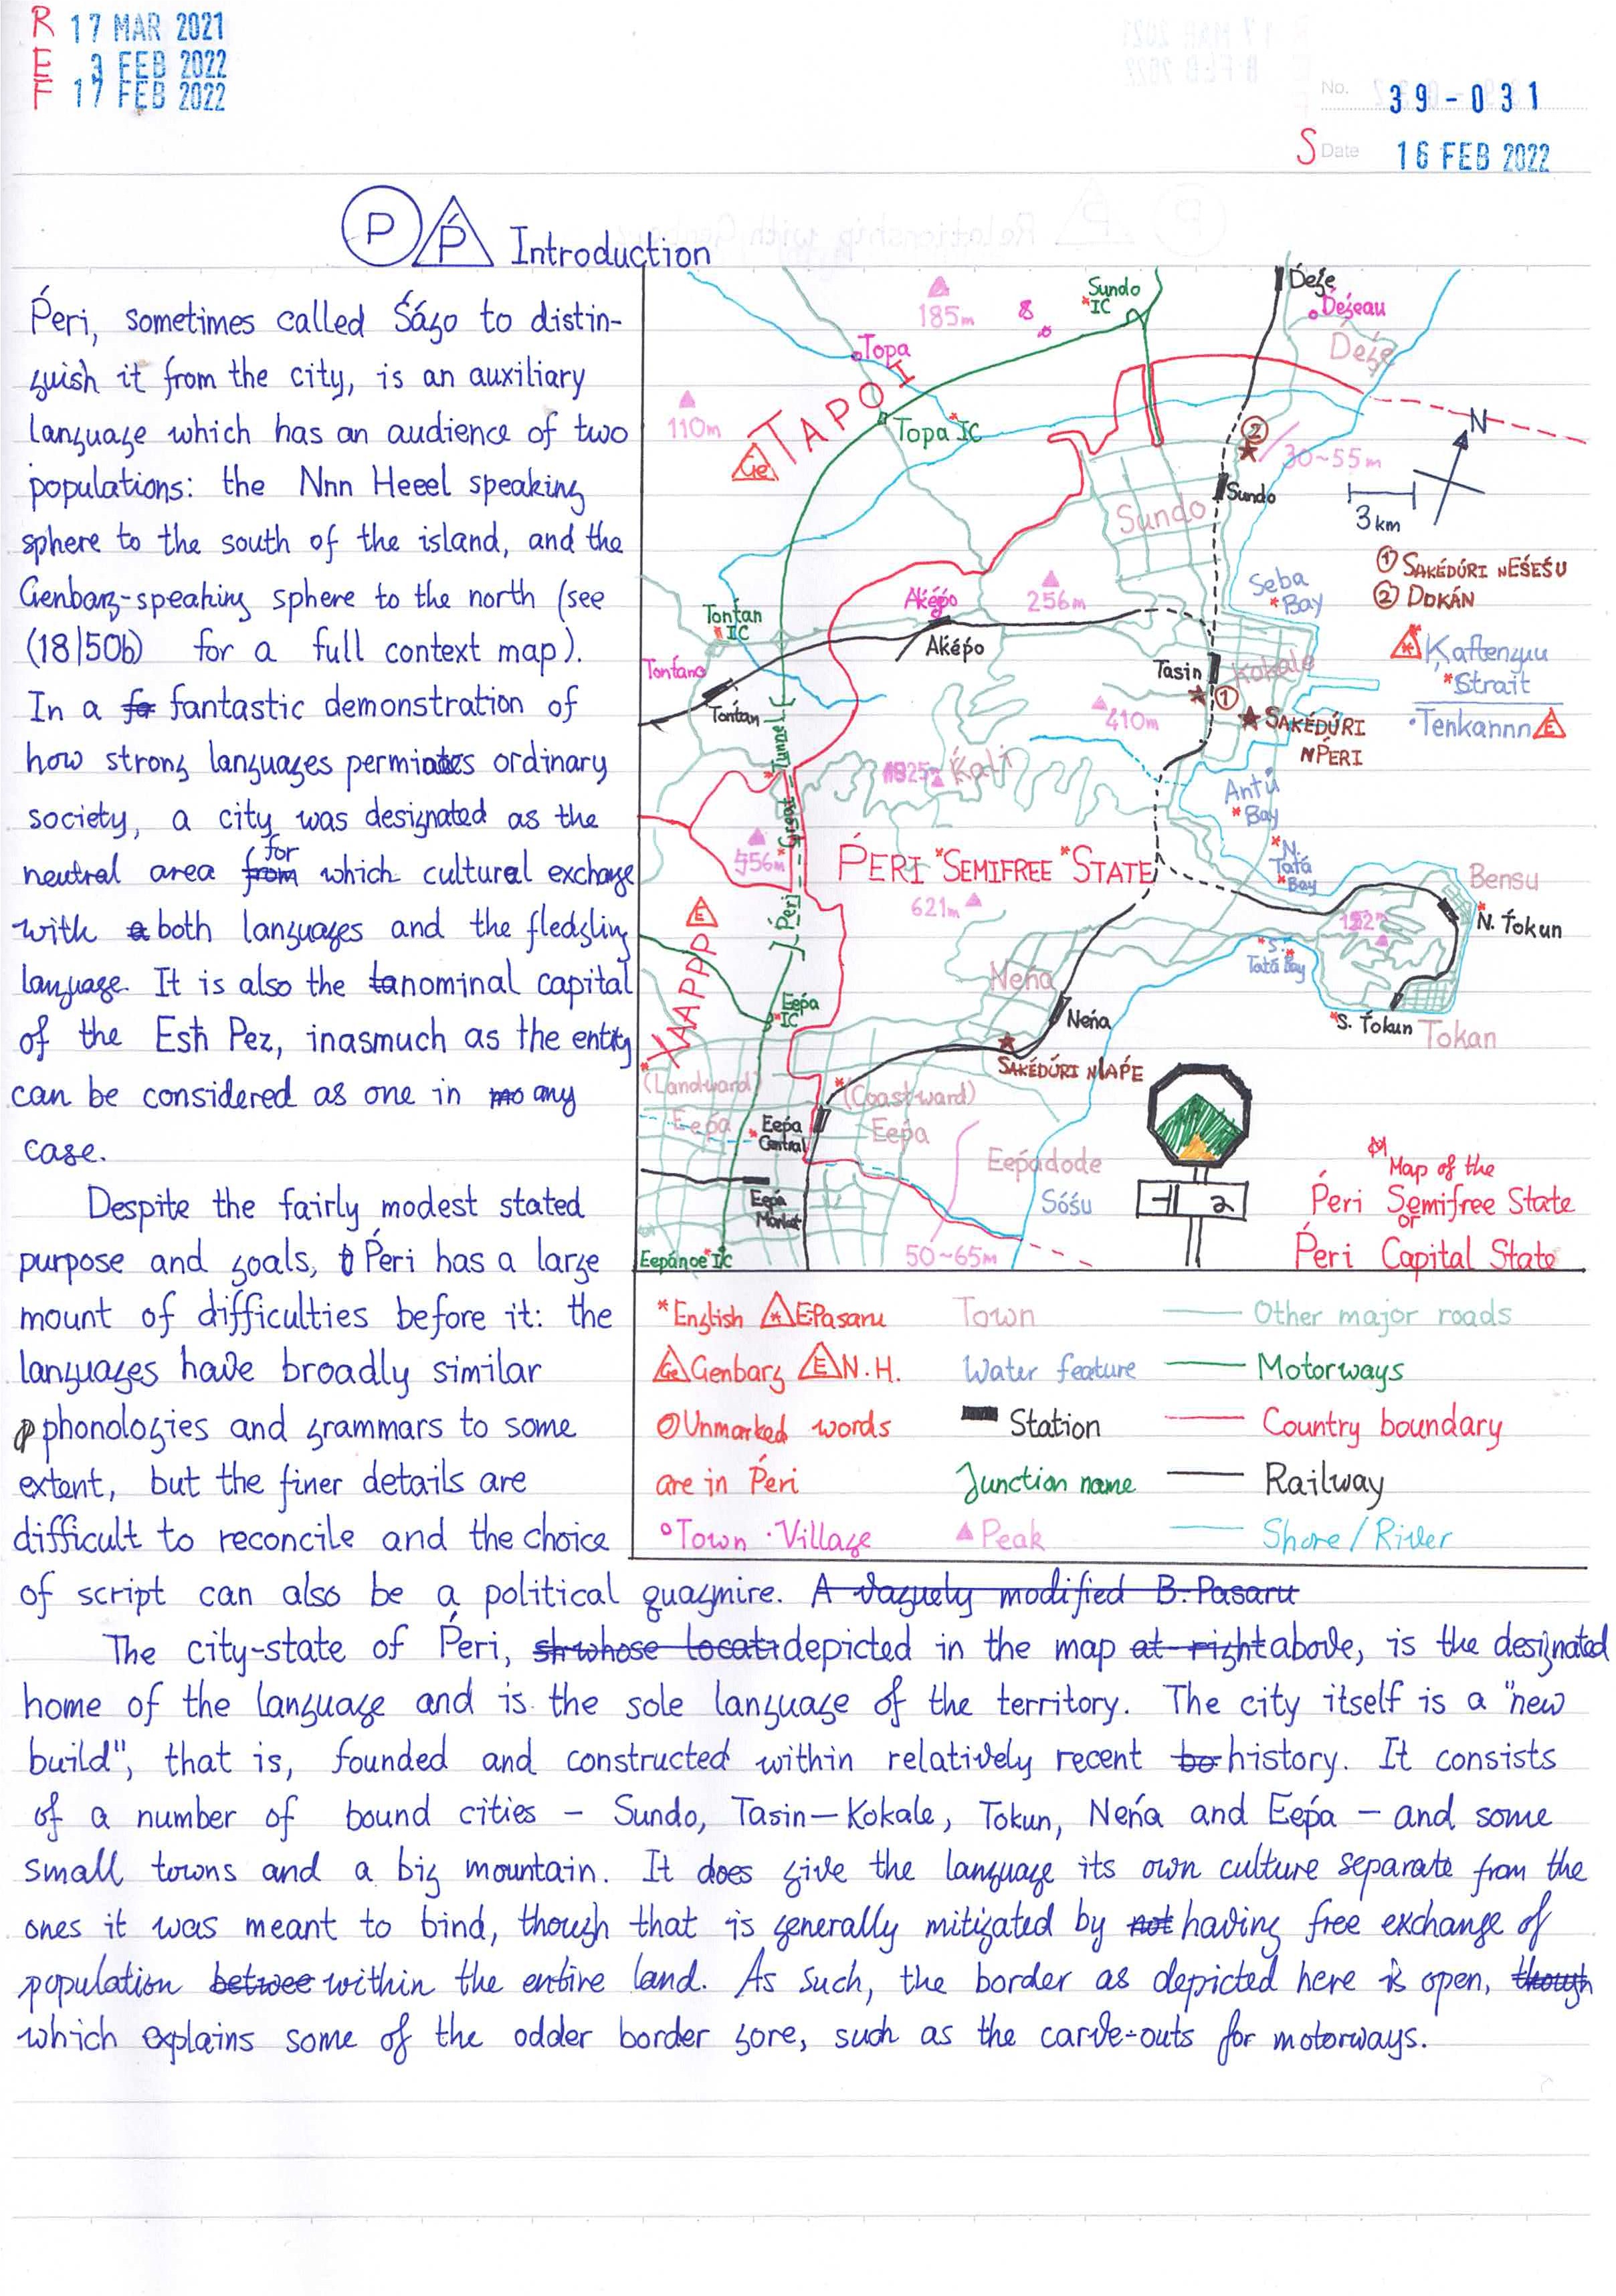 R 17 MAR 2021
E 3 FEB 2022
F 17 FEB 2022
No. 39-031
S Date 16 FEB 2022
P Ṕ Introduction
Ṕeri, sometimes called Śágo to distin-
guish it from the city, is an auxiliary
language which has an audience of two
populations: the Nnn Heeel speaking
sphere to the south of the island, and the
Genbarg-speaking sphere to the north (see
(18/50b) for a full context map).
In a fo fantastic demonstration of
how strong languages perminates ordinary
society, a city was designated as the
for
neutral area from which cultural exchange
with a both languages and the fledgling
language. It is also the ta nominal capital
of the Esħ Pez, inasmuch as the entity
can be considered as one in mo any
case.
Despite the fairly modest stated
purpose and goals, Ṕeri has a large
mount of difficulties before it: the
languages have broadly similar
phonologies and grammars to some
extent, but the finer details are
difficult to reconcile and the choice
of script can also be a political quagmire. A vaguely modified B. Pasaru
The city-state of Ṕeri, sh whose locati depicted in the map at right above, is the designated
home of the language and is the sole language of the territory. The city itself is a "new
build", that is, founded and constructed within relatively recent bo history. It consists
of a number of bound cities – Sundo, Tasin–Kokale, Tokun, Neńa and Eeṕa – and some
small towns and a big mountain. It does give the language its own culture separate from the
ones it was meant to bind, though that is generally mitigated by not having free exchange of
population betwee within the entire land. As such, the border as depicted here is open, though
which explains some of the odder border gore, such as the carve-outs for motorways.
185m
8
Sundo
*IC
Deʒe
Déʒeau
Deʒe
Topa
TAPOI
Ge
110m
Topa IC
2
30~55m
N
3km
Sundo
Sundo
1 SAKÉDÚRI NEŚEŚU
2 DOKÁN
Seba
*Bay
256m
Aképo
Aképo
Tontan
*IC
Tontano
Tontan
Tasin
Kokale
1
410m
SAKÉDÚRI
NṔERI
Kaftenguu
*Strait
Tenkannn E
Kali
Antú
*Bay
*N.
Tatá
*Bay
556m
Ṕeri *Great *Tunnel
ṔERI *SEMIFREE *STATE
621m
Bensu
152m
N. Tokun
*S.
Tatá Bay
*S. Tokun
Tokan
E
XAAPPP
Neńa
Neńa
Eeṕa
*IC
SAKÉDÚRI NIAPE
(Landward)
Eeṕa
*(Coastward)
Eeṕa
*Eeṕa
Central
Eeṕadode
Sóśu
Eeṕa
Market
Eepánoe *IC
50~65m
Map of the
Ṕeri Semifree State
or
Ṕeri Capital State
*English *EPasaru
Ge Genbarg E N.H.
Unmarked words
are in Ṕeri
Town · Village
Town
Water feature
Station
Junction name
Peak
Other major roads
Motorways
Country boundary
Railway
Shore/River